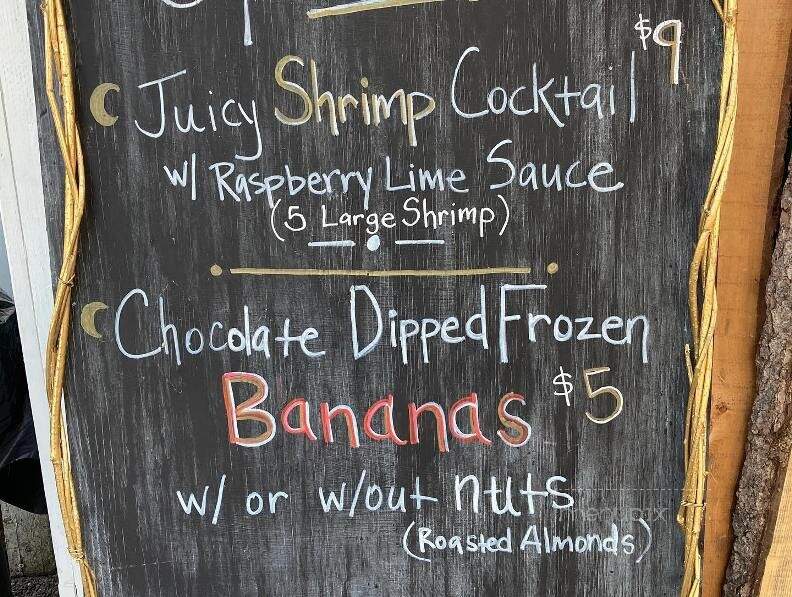 $9
Juicy Shrimp Cocktail
w/ Raspberry Lime Sauce
(5 Large Shrimp)
Chocolate Dipped Frozen
Bananas $5
w/ or w/out nuts
(Roasted Almonds)